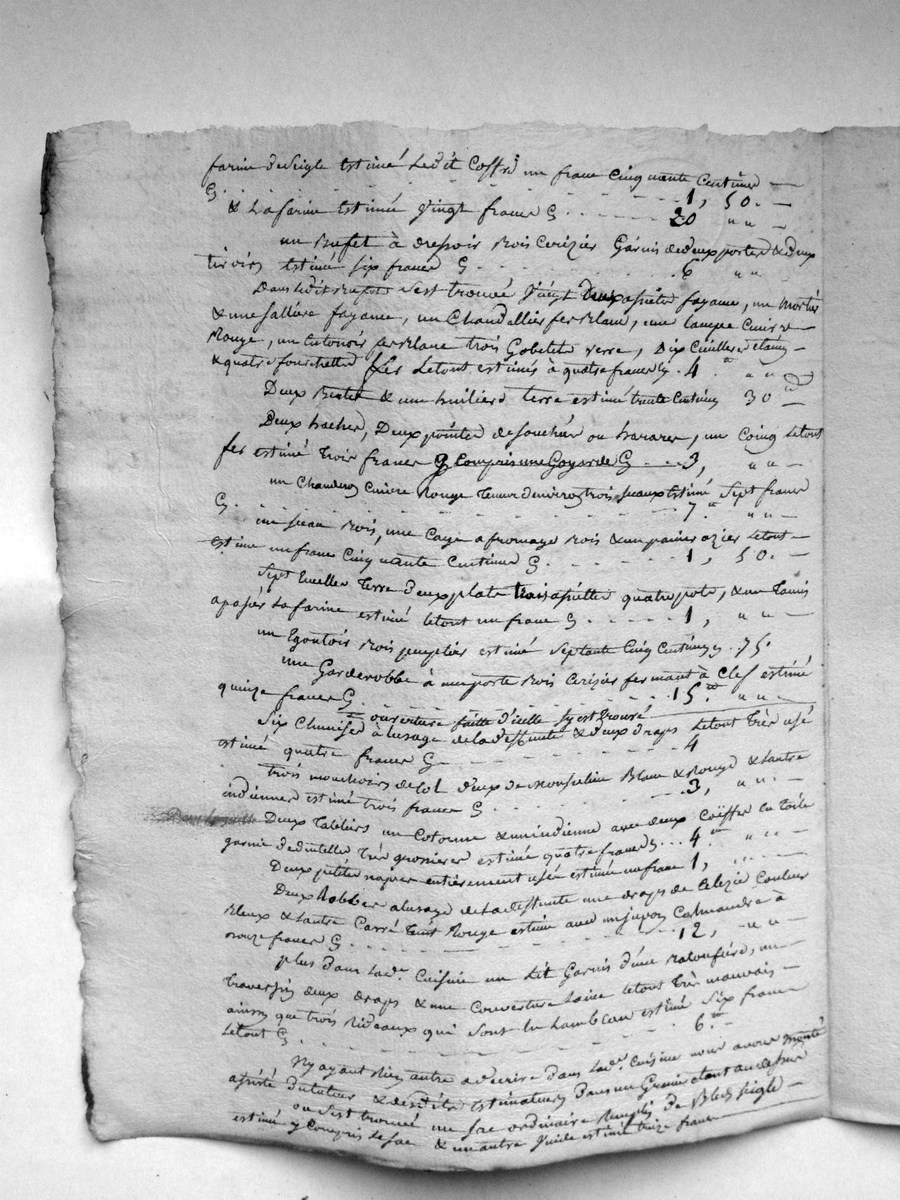 farine de Seigle Estimé Ledit Coffre un franc Cinquante Centimes —
G. . . . . . . . . . 1, 50. —
& La farine Estimé Vingt francs G . . . . . 20 " " —
un Bufet à dressoir Bois Cerizier Garnis de deux portes & deux
tiroirs Estimé Six francs G . . . . . . . 6 " "
Dans Ledit Bufet S'est trouvé Vingt Deux assiettes fayance, un Mortier
& une Sallière fayance, un Chandellier fer Blanc, une lampe Cuivre —
Rouge, un Entonoir fer Blanc trois Gobelets verre, Dix Cuilleres étain —
& quatre fourchettes fer Letout estimés à quatre francs G . 4 " " —
Deux & une huilière terre estimé trente Centimes 30 —
Deux haches, Deux de ou , un Coing Letout
fer estimé Trois francs G Compris une Goyarde G . . . . 3, " " —
un Chaudron Cuivre Rouge Tenure d'environ trois Seaux Estimé Sept francs
G. . . . . . . . . . 7. " " —
un Seau Bois, une Cage a fromage Bois & un panier ozier Letout —
estimé un franc Cinquante Centimes G . . . . . . 1, 50. —
Sept Ecuelles Terre Deux plats trois assiettes quatre pots, & une Tamis
a passer La farine estimé letout un franc G . . . . . . 1, " " —
un Egoutois Bois peuplier estimé Septante Cinq Centimes . 75.
une Garderobbe à une porte Bois Cerizier fermant à Clef estimé
quinze francs G . . . . . . . . . 15. " " —
ouverture faitte d'icelle Sy est trouvé
Six Chemises à l'usage de la deffunte & deux draps Letout Très usé
estimé quatre francs G . . . . . . . 4
Trois mouchoirs de Col deux de Monseline Blanc & Rouge & Lautre
indienne estimé trois francs G . . . . . . . 3, " " —
Deux Tabliers un Cotonne & un indienne avec deux Coëffes en Toile
garnie de dintelle Très grossieres estimée quatre francs . . . 4 " " —
Deux petites napes entièrement usée estimée un franc 1, . . . —
Deux Robbes a lusage de La deffunte une draps de Couleur
Bleux & Lautre Carré Teint Rouge estimé avec un jupon Calmandre à
Douze francs G . . . . . . . . . 12, " " —
plus dans Lad.e Cuisine un Lit Garnis d'une , un —
Traversin deux draps & une Couverture Laine letout Très mauvais —
ainsy que trois Rideaux qui Sont en Lambeau estimé Six francs
Letout G . . . . . . . . . 6. —
N'y ayant Rien autre a décrire dans Lad.e Cuisine nous avons monté
assisté du tuteur & desdits Estimateurs Dans un Grenier étant au dessus
ou S'est trouvé un Sac ordinaire Remplis de Bled Seigle —
estimé y Compris le Sac & un autre Vuide estimé treize francs